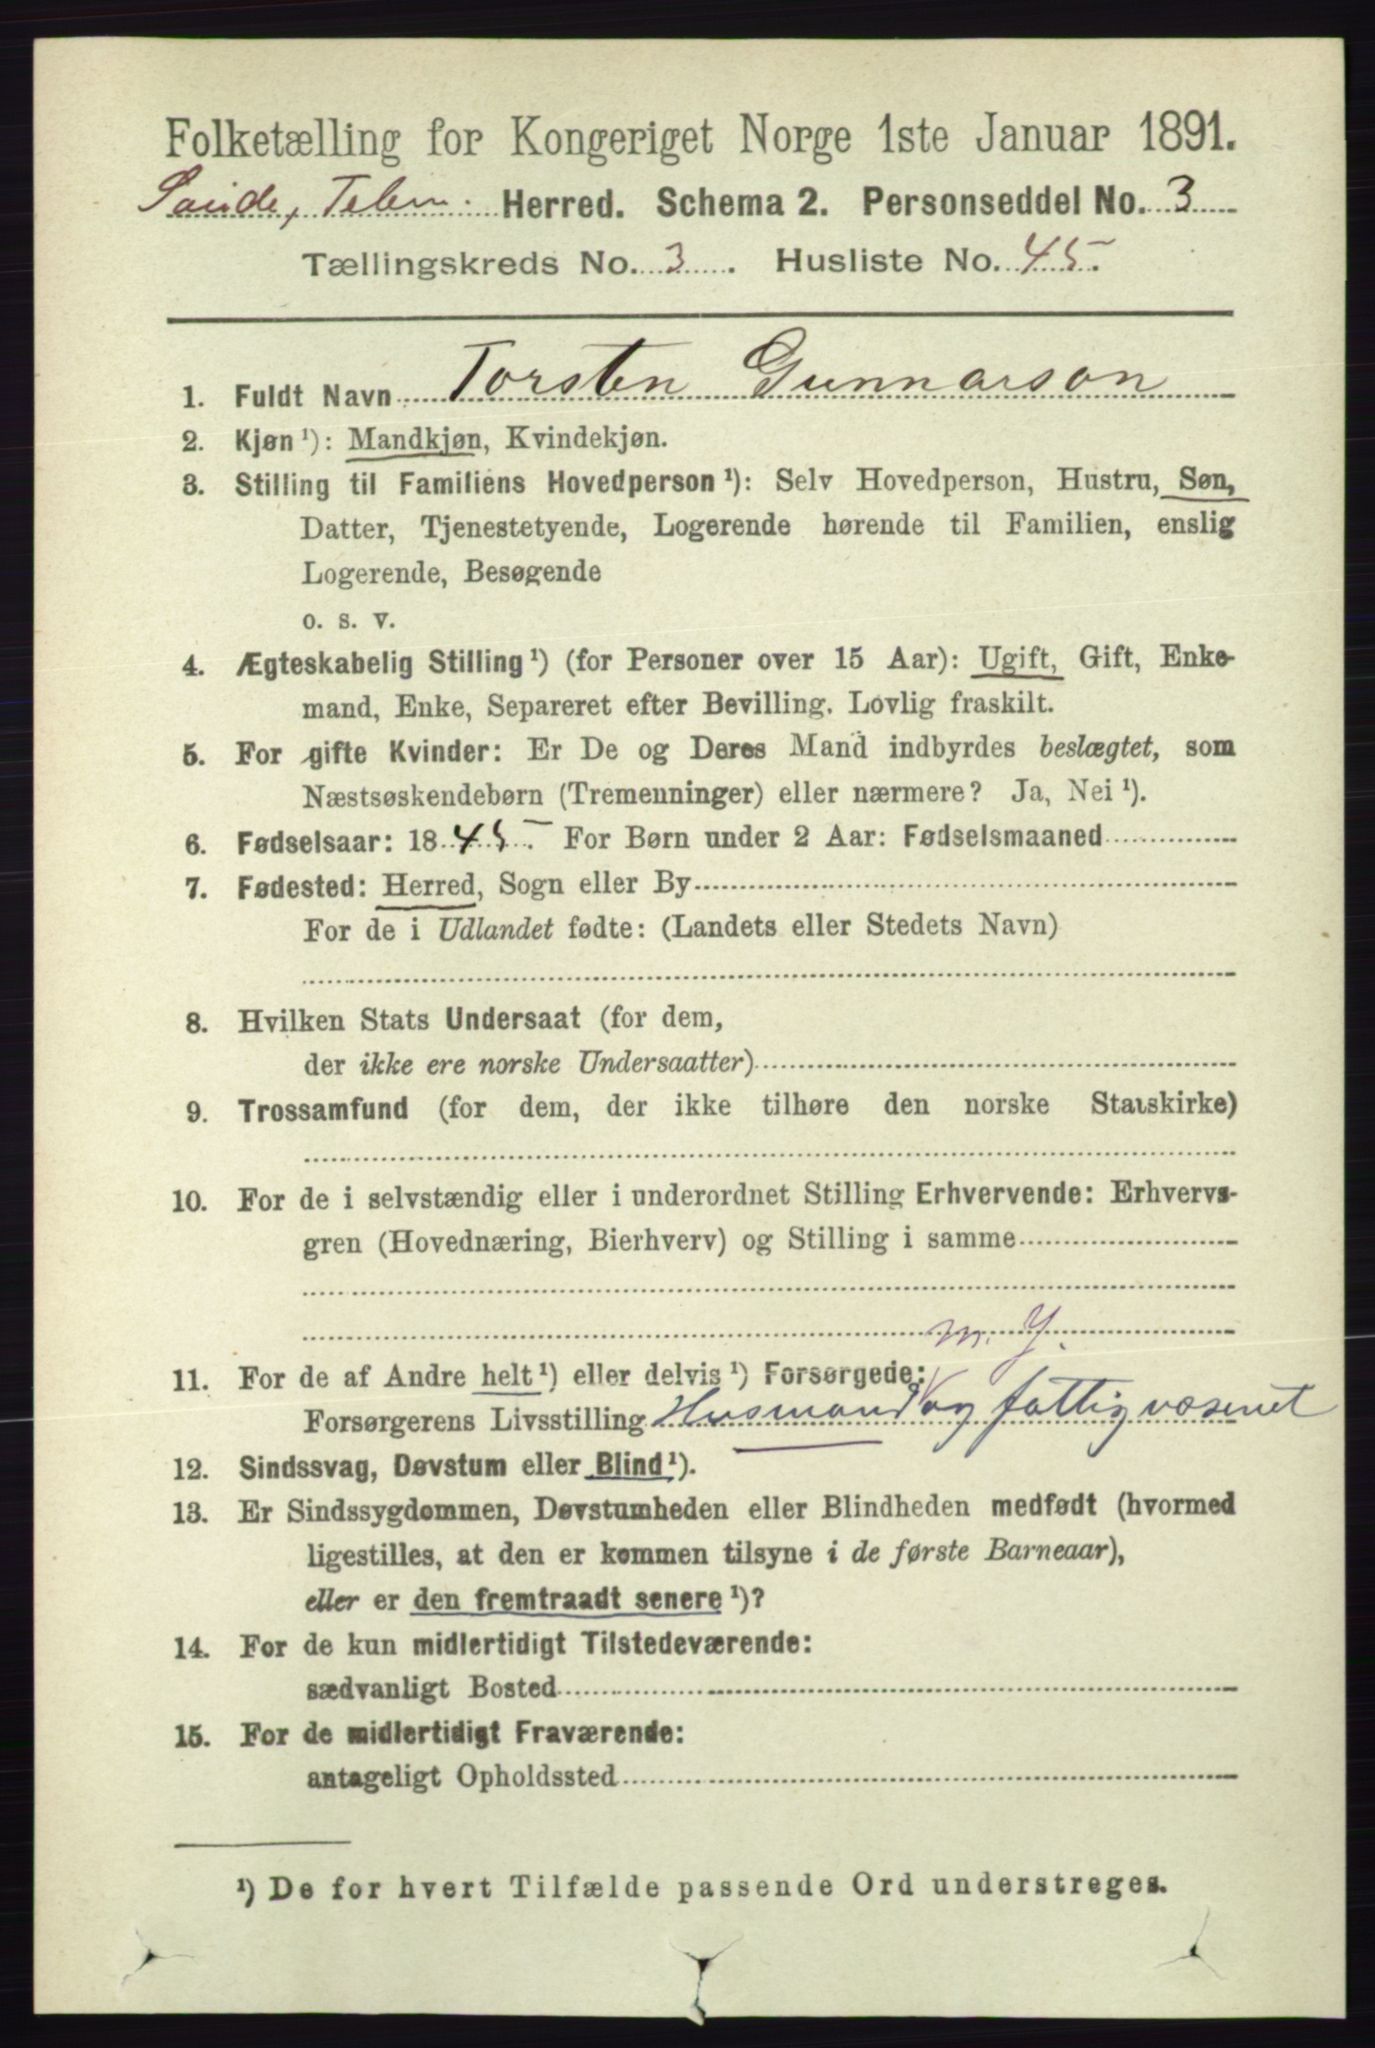 Folketælling for Kongeriget Norge 1ste Januar 1891.
Telem. Herred. Schema 2. Personseddel No. 3
Tællingskreds No. 3. Husliste No. 45.
1. Fuldt Navn Torsten Gunnarson
2. Kjøn¹): Mandkjøn, Kvindekjøn.
3. Stilling til Familiens Hovedperson¹): Selv Hovedperson, Hustru, Søn,
Datter, Tjenestetyende, Logerende hørende til Familien, enslig
Logerende, Besøgende
o. s. v.
4. Ægteskabelig Stilling¹) (for Personer over 15 Aar): Ugift, Gift, Enke-
mand, Enke, Separeret efter Bevilling. Lovlig fraskilt.
5. For gifte Kvinder: Er De og Deres Mand indbyrdes beslægtet, som
Næstsøskendebørn (Tremenninger) eller nærmere? Ja, Nei¹).
6. Fødselsaar: 1845. For Børn under 2 Aar: Fødselsmaaned
7. Fødested: Herred, Sogn eller By
For de i Udlandet fødte: (Landets eller Stedets Navn)
8. Hvilken Stats Undersaat (for dem,
der ikke ere norske Undersaatter)
9. Trossamfund (for dem, der ikke tilhøre den norske Statskirke)
10. For de i selvstændig eller i underordnet Stilling Erhvervende: Erhvervs-
gren (Hovednæring, Bierhverv) og Stilling i samme
m. J.
11. For de af Andre helt¹) eller delvis¹) Forsørgede:
Forsørgerens Livsstilling Husmand og fattigvæsenet
12. Sindssvag, Døvstum eller Blind¹).
13. Er Sindssygdommen, Døvstumheden eller Blindheden medfødt (hvormed
ligestilles, at den er kommen tilsyne i de første Barneaar),
eller er den fremtraadt senere¹)?
14. For de kun midlertidigt Tilstedeværende:
sædvanligt Bosted
15. For de midlertidigt Fraværende:
antageligt Opholdssted
¹) De for hvert Tilfælde passende Ord understreges.